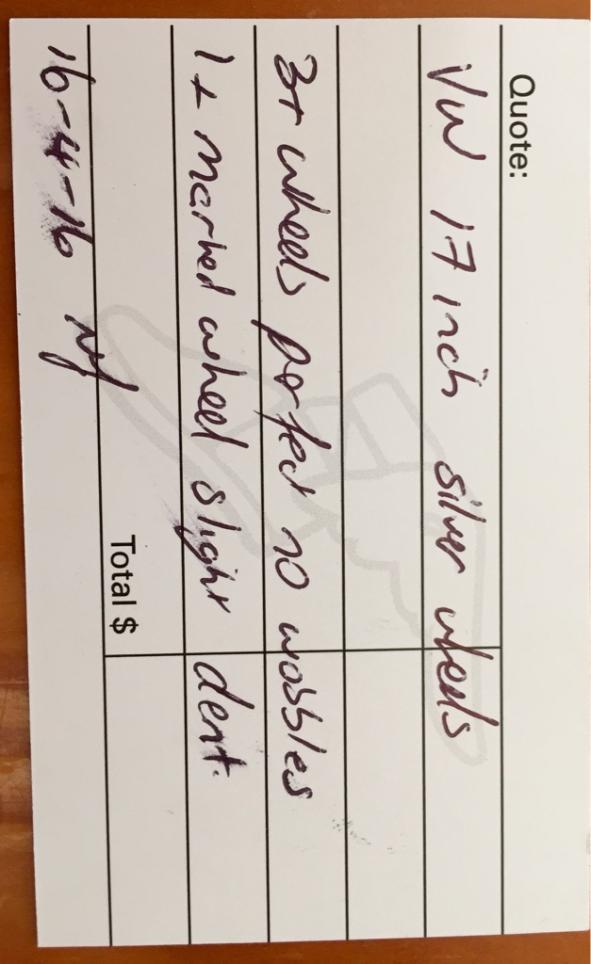 Quote:
VW 17 inch silver wheels
3+ wheels perfect no wobbles
1 + marked wheel slight dent.
Total $
16-4-16